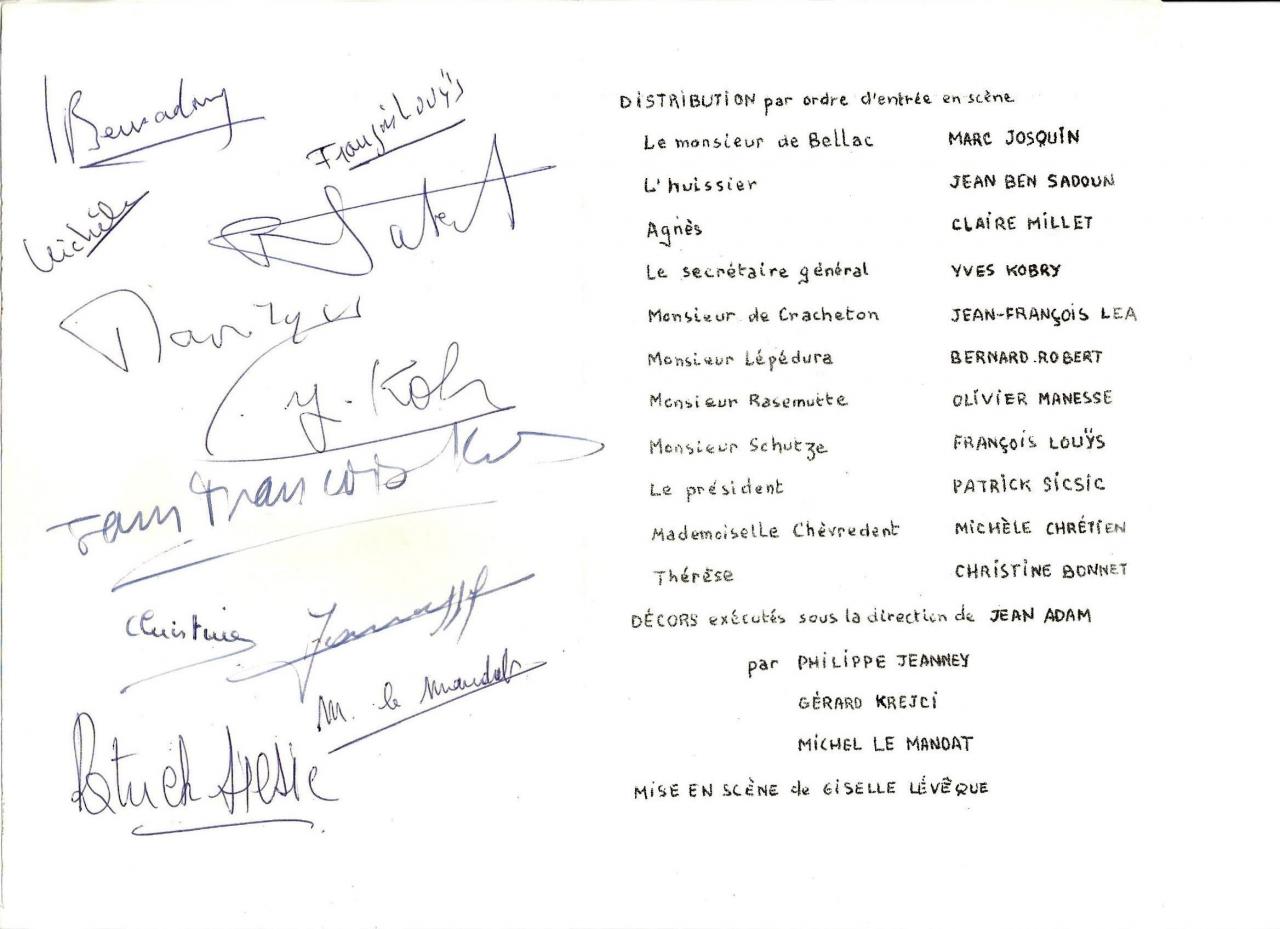 François Louÿs
Michèle
Y. Kob
Jean François
Christine
M. le Mandat
Patrick Sicsic
DISTRIBUTION par ordre d'entrée en scène
Le monsieur de Bellac MARC JOSQUIN
L'huissier JEAN BEN SADOUN
Agnès CLAIRE MILLET
Le secrétaire général YVES KOBRY
Monsieur de Cracheton JEAN-FRANÇOIS LEA
Monsieur Lépédura BERNARD.ROBERT
Monsieur Rasemutte OLIVIER MANESSE
Monsieur Schutze FRANÇOIS LOUŸS
Le président PATRICK SICSIC
Mademoiselle Chèvredent MICHÈLE CHRÉTIEN
Thérèse CHRISTINE BONNET
DÉCORS exécutés sous la direction de JEAN ADAM
par PHILIPPE JEANNEY
GÉRARD KREJCI
MICHEL LE MANDAT
MISE EN SCÈNE de GISELLE LÉVÊQUE